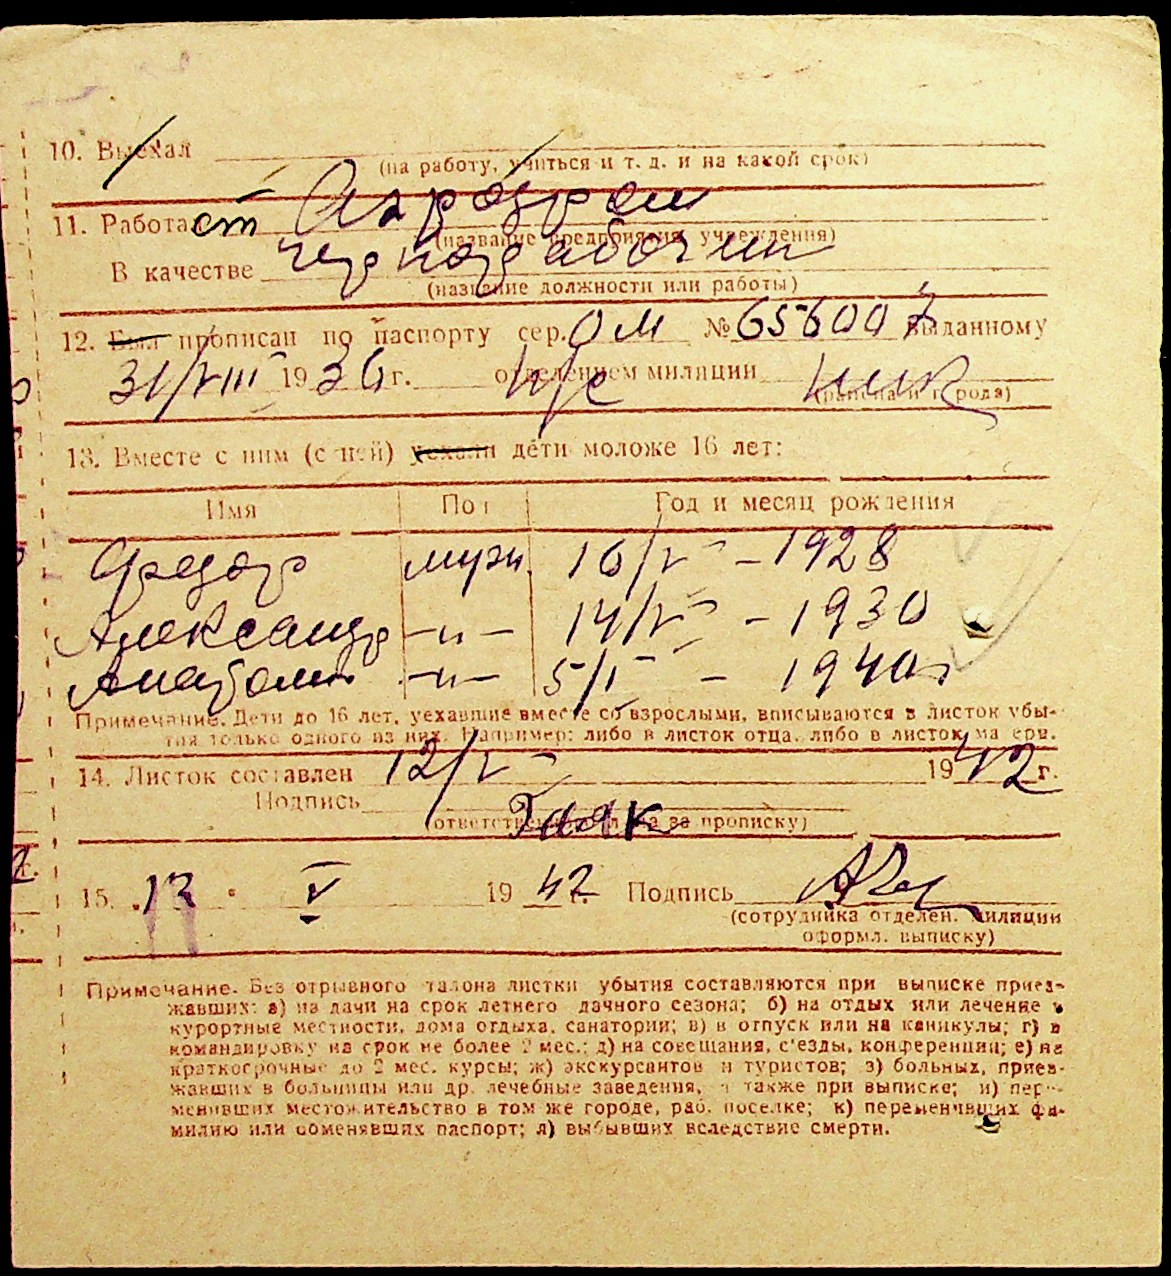 10. Выехал
(на работу, учиться и т. д. и на какой срок)
11. Работает
(название предприятия, учреждения)
В качестве чернорабочий
(название должности или работы)
12. Был прописан по паспорту сер. ОМ № 656007 выданному
31/VIII 1936 г. отделением милиции
(района и города)
13. Вместе с ним (с ней) уехали дети моложе 16 лет:
Имя Пол Год и месяц рождения
Федор муж. 16/V - 1928
Александр -"- 14/V - 1930
Анатолий -"- 5/I - 1940
Примечание. Дети до 16 лет, уехавшие вместе со взрослыми, вписываются в листок убы-
тия только одного из них. Например: либо в листок отца, либо в листок матери.
14. Листок составлен 12/V 1942 г.
Подпись
(ответственного лица за прописку)
15. 13 V 1942 г. Подпись
(сотрудника отделен. милиции
оформл. выписку)
Примечание. Без отрывного талона листки убытия составляются при выписке приез-
жавших: а) на дачи на срок летнего дачного сезона; б) на отдых или лечение в
курортные местности, дома отдыха, санатории; в) в отпуск или на каникулы; г) в
командировку на срок не более 2 мес.; д) на совещания, с'езды, конференции; е) на
краткосрочные до 2 мес. курсы; ж) экскурсантов и туристов; з) больных, приез-
жавших в больницы или др. лечебные заведения, а также при выписке; и) пере-
менивших местожительство в том же городе, раб. поселке; к) переменивших фа-
милию или обменявших паспорт; л) выбывших вследствие смерти.